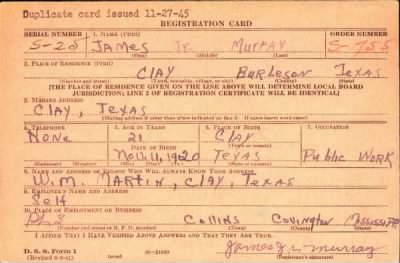 Duplicate card issued 11-27-45
REGISTRATION CARD
SERIAL NUMBER 1. NAME (Print) ORDER NUMBER
S-28 JAMES Jr. MURRAY S-755
(First) (Middle) (Last)
2. PLACE OF RESIDENCE (Print)
CLAY BURLESON TEXAS
(Number and street) (Town, township, village, or city) (County) (State)
[THE PLACE OF RESIDENCE GIVEN ON THE LINE ABOVE WILL DETERMINE LOCAL BOARD
JURISDICTION; LINE 2 OF REGISTRATION CERTIFICATE WILL BE IDENTICAL]
3. MAILING ADDRESS
CLAY, TEXAS
[Mailing address if other than place indicated on line 2. If same insert word same]
4. TELEPHONE 5. AGE IN YEARS 6. PLACE OF BIRTH 7. OCCUPATION
NONE 21 CLAY
DATE OF BIRTH
Nov. 11, 1920 TEXAS Public Work
(Exchange) (Number) (Mo.) (Day) (Yr.) (State or country)
8. NAME AND ADDRESS OF PERSON WHO WILL ALWAYS KNOW YOUR ADDRESS
W.M. MARTIN, CLAY, TEXAS
9. EMPLOYER'S NAME AND ADDRESS
Self
10. PLACE OF EMPLOYMENT OR BUSINESS
Collins Covington Mississippi
(Number and street or R. F. D. number) (Town) (County) (State)
I AFFIRM THAT I HAVE VERIFIED ABOVE ANSWERS AND THAT THEY ARE TRUE.
D. S. S. Form 1
James Jr. Murray